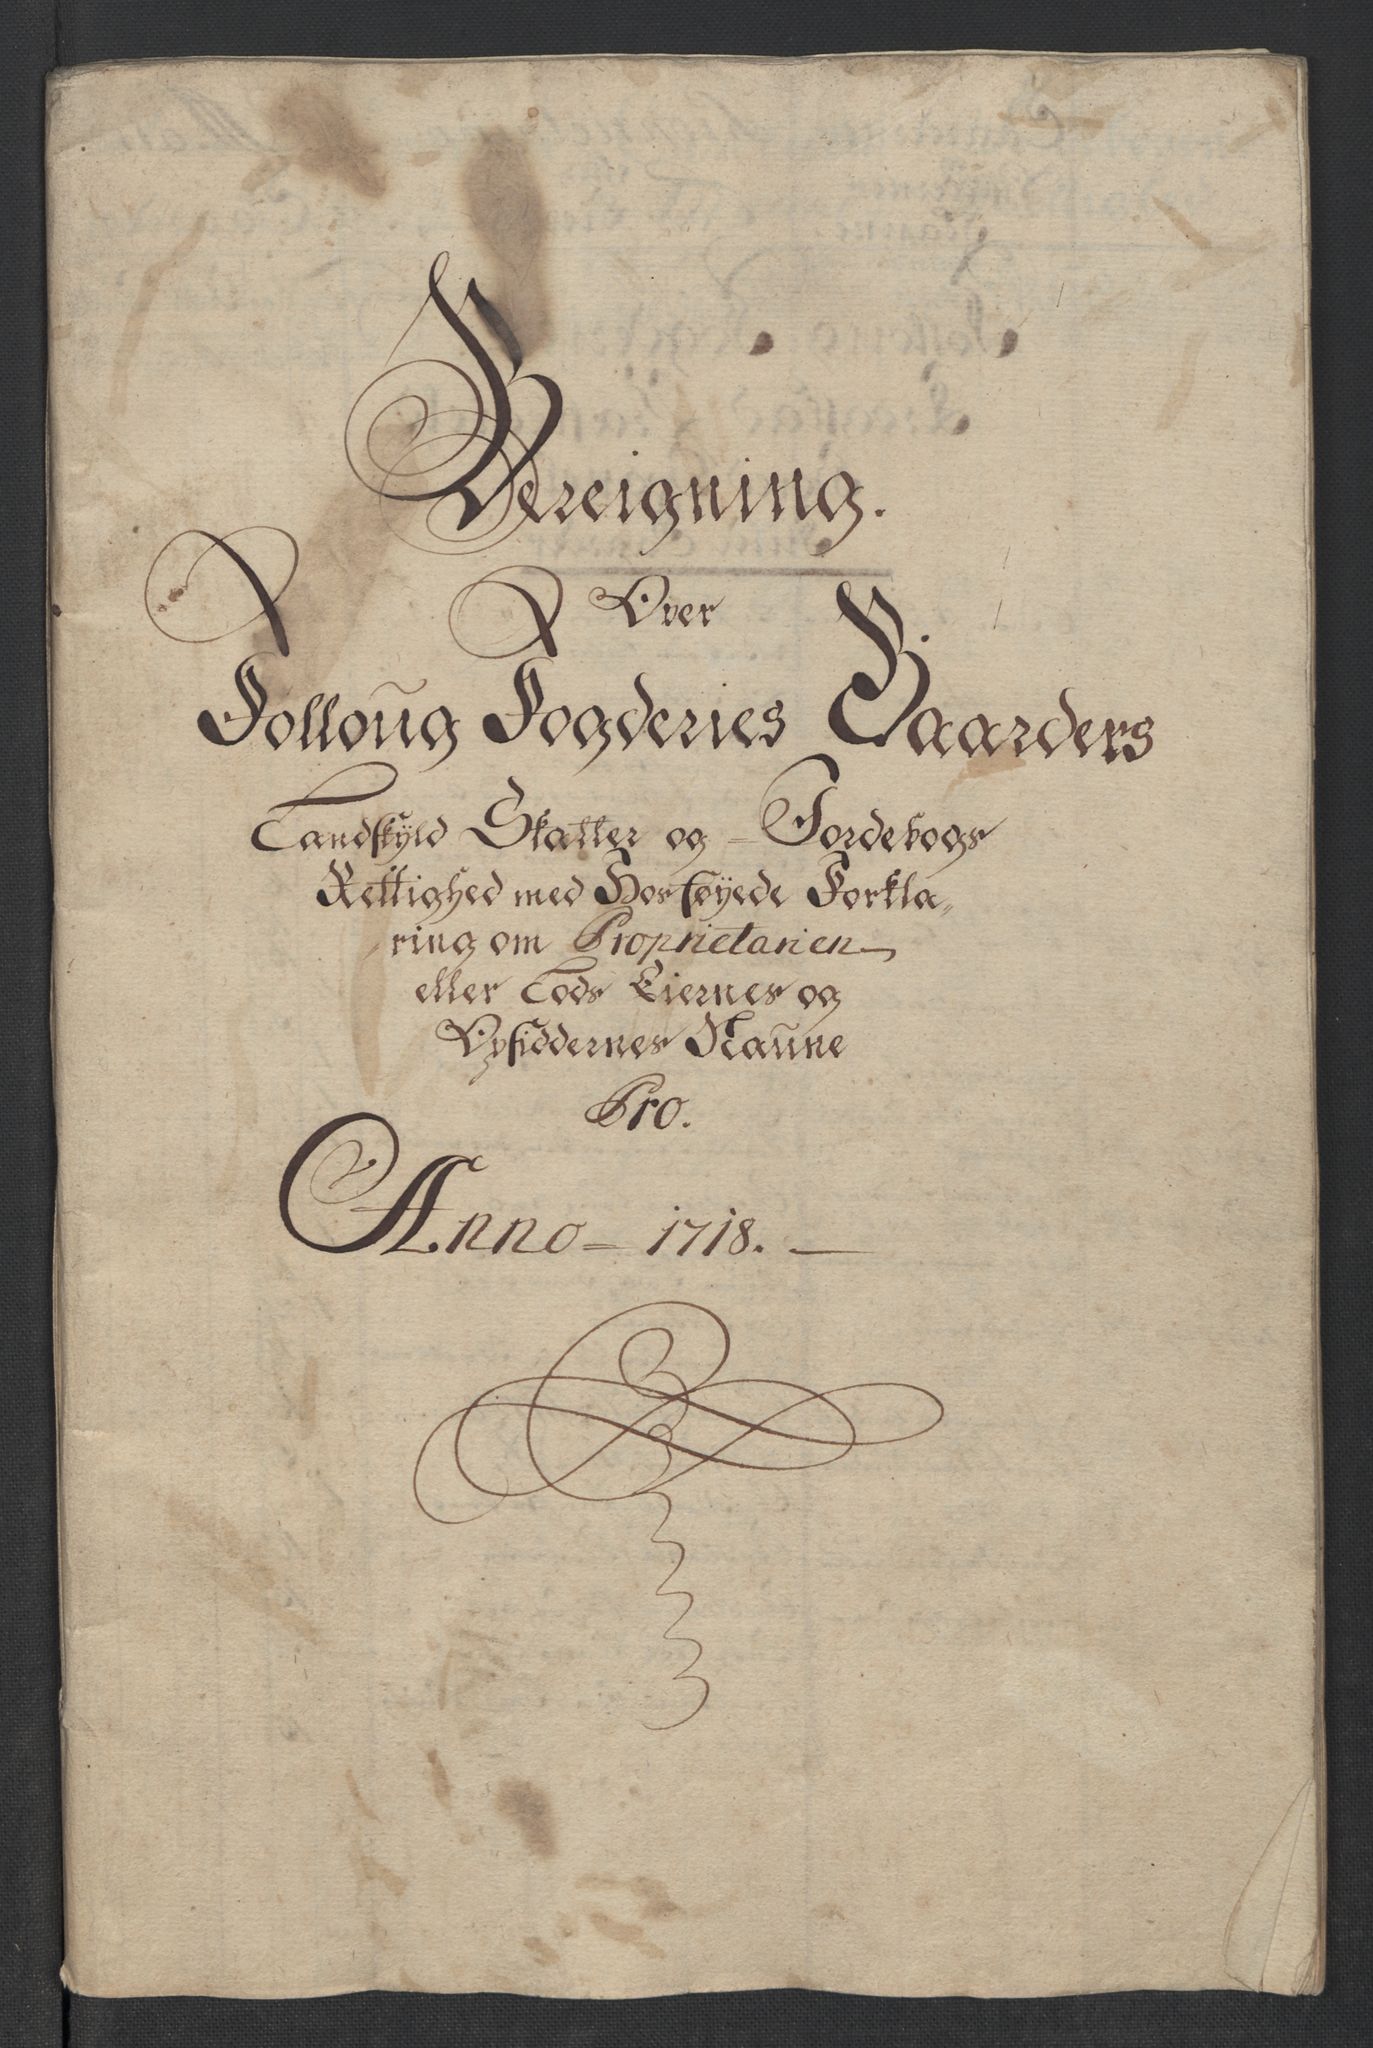 Bereigning.
Over
Folloug Fogderies Gaarders
Landskyld Skatter og - Jordebogs
Rettighed med Hosføyede Forkla,,
ring om Proprietarien
eller Lods Eiernes og
Opsiddernes Naune
Pro.
Anno - 1718. -